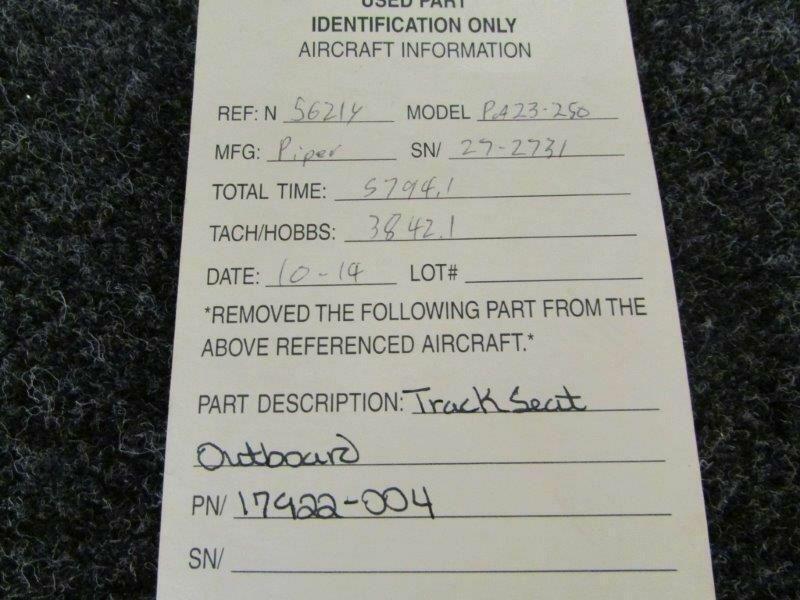 USED PART
IDENTIFICATION ONLY
AIRCRAFT INFORMATION
REF: N 5621Y MODEL PA23-250
MFG: Piper SN/ 27-2731
TOTAL TIME: 5794.1
TACH/HOBBS: 3842.1
DATE: 10-14 LOT#
*REMOVED THE FOLLOWING PART FROM THE
ABOVE REFERENCED AIRCRAFT.*
PART DESCRIPTION: Track Seat
Outboard
PN/ 17922-004
SN/